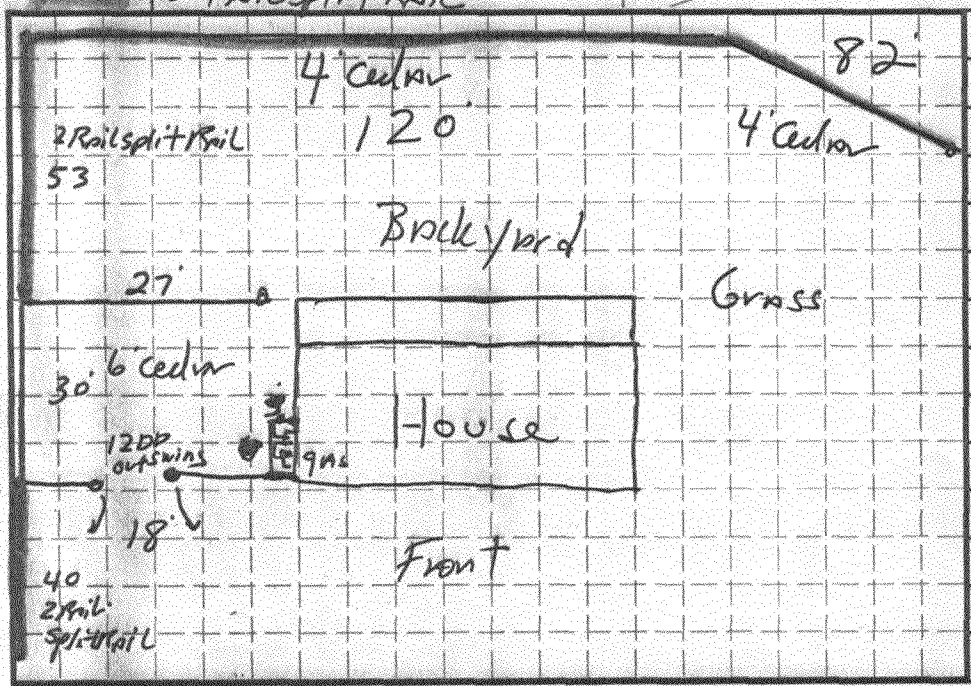 82'
4' Cedar
120'
4' Cedar
2 Rail split Rail
53
Backyard
27'
Grass
6' Cedar
30'
House
12DD
outswing
gas
18'
Front
40
2 Rail
Split Rail